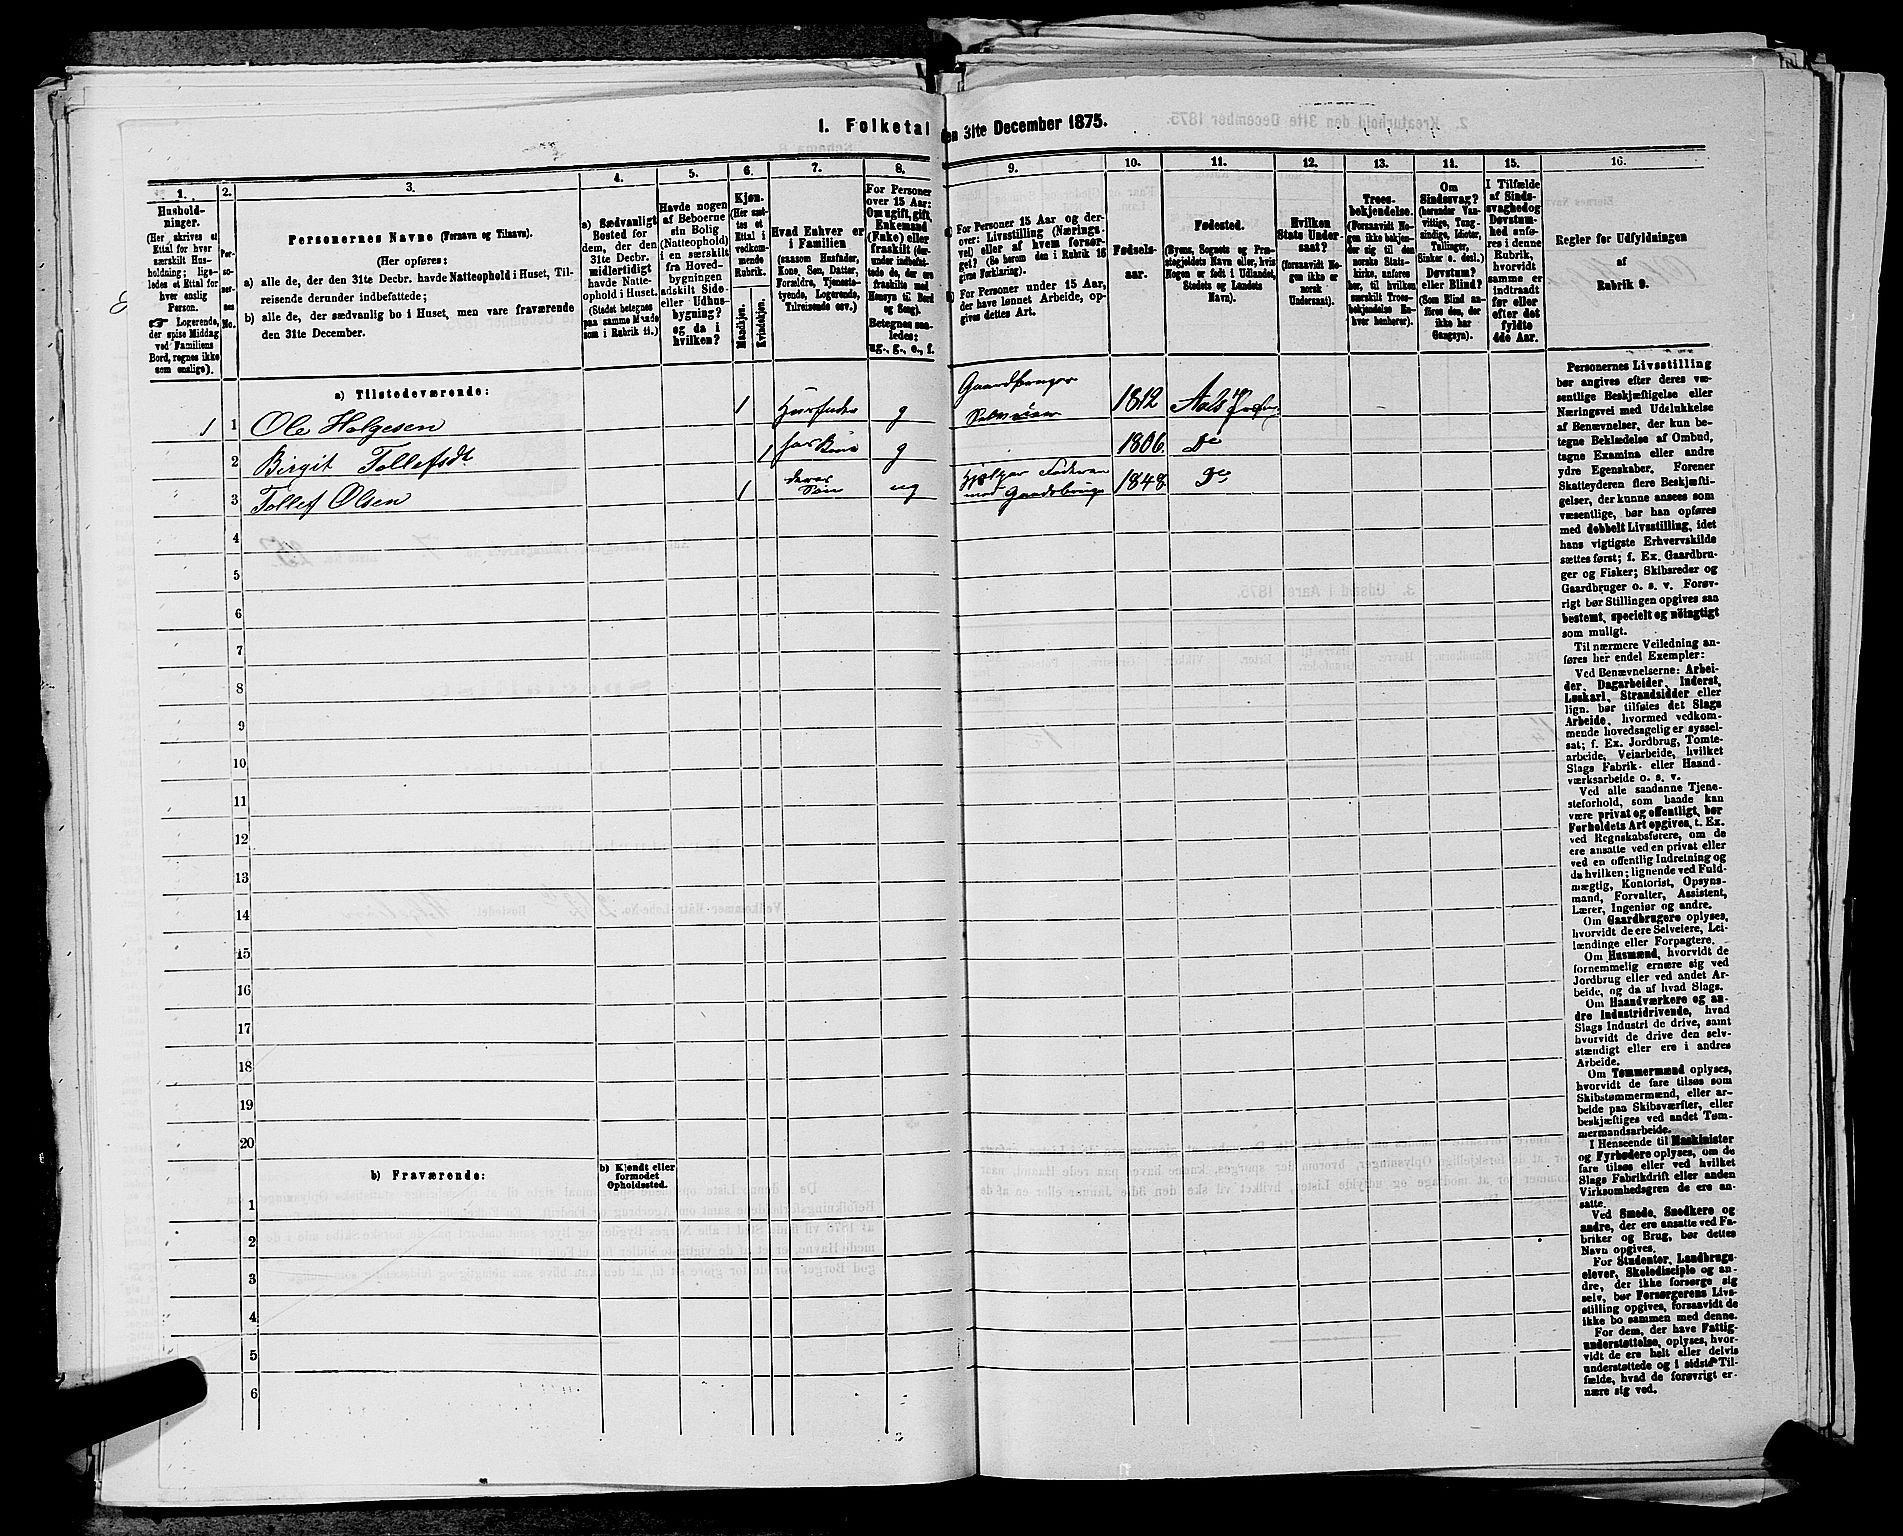 1. Folketal den 31te December 1875.
1. 2. 3. 4. 5. 6. 7. 8. 9. 10. 11. 12. 13. 14. 15. 16.
Hushold-
ninger.
(Her skrives et
Ettal for hver
særskilt Hus-
holdning; lige-
ledes et Ettal for
hver enslig
Person.
☞ Logerende,
der spise Middag
ved Familiens
Bord, regnes ikke
som enslige).
Per-
so-
ner-
nes
No.
Personernes Navne (Fornavn og Tilnavn).
(Her opføres:
a) alle de, der den 31te Decbr. havde Natteophold i Huset, Til-
reisende derunder indbefattede;
b) alle de, der sædvanlig bo i Huset, men vare fraværende
den 31te December.
a) Sædvanligt
Bosted for
dem, der den
31te Decbr.
midlertidigt
havde Natte-
ophold i Huset.
(Stedet betegnes
paa samme Maade
som i Rubrik 11.)
Havde nogen
af Beboerne
sin Bolig
(Natteophold)
i en særskilt
fra Hoved-
bygningen
adskilt Side-
eller Udhus-
bygning?
og da i
hvilken?
Kjøn.
(Her sæt-
tes et
Ettal i
vedkom-
mende
Rubrik.
Mandkjøn.
Kvindekjøn.
Hvad Enhver er
i Familien
(saasom Husfader,
Kone, Søn, Datter,
Forældre, Tjeneste-
tyende, Logerende,
Tilreisende osv.)
For Personer
over 15 Aar:
Om ugift, gift,
Enkemand
(Enke) eller
fraskilt (der-
under indbefat-
tede de, der ere
fraskilte med
Hensyn til Bord
og Seng).
Betegnes saa-
ledes:
ug., g., e., f.
For Personer 15 Aar og der-
over: Livsstilling (Nærings-
vei) eller af hvem forsør-
get? (Se herom den i Rubrik 16
givne Forklaring).
For Personer under 15 Aar,
der have lønnet Arbeide, op-
gives dettes Art.
Fødsels-
aar.
Fødested.
(Byens, Sognets og Præ-
stegjeldets Navn eller, hvis
Nogen er født i Udlandet,
Stedets og Landets
Navn).
Hvilken
Stats Under-
saat?
(forsaavidt No-
gen ikke er
norsk
Undersaat).
Troes-
bekjendelse.
(Forsaavidt No-
gen ikke bekjen-
der sig til den
norske Stats-
kirke, anføres
her, til hvilken
særskilt Troes-
bekjendelse En-
hver henhører).
Om
Sindssvag?
(herunder Van-
vittige, Tung-
sindige, Idioter,
Tullinger,
Sinker o. desl.)
Døvstum?
eller Blind?
(Som Blind an-
føres den, der
ikke har
Gangsyn).
I Tilfælde
af Sinds-
svaghed og
Døvstum-
hed anfø-
res i denne
Rubrik,
hvorvidt
samme er
indtraadt
før eller
efter det
fyldte
4de Aar.
Regler for Udfyldningen
af
Rubrik 9.
a) Tilstedeværende:
1 1 Ole Helgesen 1 Husfader g Gaardbruger Selveier 1812 Aals
2 Birgit Tollefsdt 1 g 1806 Do
3 Tollef Olsen 1 deres Søn ug hjælper Faderen med Gaardsbruge 1848 Do
4
5
6
7
8
9
10
11
12
13
14
15
16
17
18
19
20
b) Fraværende:
b) Kjendt eller
formodet
Opholdssted.
1
2
3
4
5
6
Personernes Livsstilling
bør angives efter deres væ-
sentlige Beskjæftigelse eller
Næringsvei med Udelukkelse
af Benævnelser, der kun be-
tegne Beklædelse af Ombud,
tagne Examina eller andre
ydre Egenskaber. Forener
Skatteyderen flere Beskjæfti-
gelser, der kunne ansees som
væsentlige, bør han opføres
med dobbelt Livsstilling, idet
hans vigtigste Erhvervskilde
sættes først; f. Ex. Gaardbru-
ger og Fisker; Skibsreder og
Gaardbruger o. s. v. Forøv-
rigt bør Stillingen opgives saa
bestemt, specielt og nøiagtigt
som muligt.
Til nærmere Veiledning an-
føres her endel Exempler:
Ved Benævnelserne: Arbei-
der, Dagarbeider, Inderst,
Løskarl, Strandsidder eller
lign. bør tilføies det Slags
Arbeide, hvormed vedkom-
mende hovedsagelig er syssel-
sat; f. Ex. Jordbrug, Tomte-
arbeide, Veiarbeide, hvilket
Slags Fabrik- eller Haand-
værksarbeide o. s. v.
Ved alle saadanne Tjene-
steforhold, som baade kan
være privat og offentligt, bør
Forholdets Art opgives, t. Ex.
ved Regnskabsførere, om de
ere ansatte ved en privat eller
ved en offentlig Indretning og
da hvilken; lignende ved Fuld-
mægtig, Kontorist, Opsyns-
mand, Forvalter, Assistent,
Lærer, Ingeniør og andre.
Om Gaardbrugere oplyses,
hvorvidt de ere Selveiere, Lei-
lændinge eller Forpagtere.
Om Husmænd, hvorvidt de
fornemmelig ernære sig ved
Jordbrug eller ved andet Ar-
beide, og da af hvad Slags.
Om Haandværkere og an-
dre Industridrivende, hvad
Slags Industri de drive, samt
hvorvidt de drive den selv-
stændigt eller ere i andres
Arbeide.
Om Tømmermænd oplyses,
hvorvidt de fare tilsøs som
Skibstømmermænd, eller ar-
beide paa Skibsværfter, eller
beskjæftiges ved andet Tøm-
mermandsarbeide.
I Henseende til Maskinister
og Fyrbødere oplyses, om de
fare tilsøs eller ved hvilket
Slags Fabrikdrift eller anden
Virksomhedsgren de ere an-
satte.
Ved Smede, Snedkere og
andre, der ere ansatte ved Fa-
briker og Brug, bør dettes
Navn opgives.
For Studenter, Landbrugs-
elever, Skoledisciple og an-
dre, der ikke forsørge sig
selv, bør Forsørgerens Livs-
stilling opgives, forsaavidt de
ikke bo sammen med denne.
For dem, der have Fattig-
understøttelse, oplyses, hvor-
vidt de ere helt eller delvis
understøttede og i sidste Til-
fælde, hvad de forøvrigt er-
nære sig ved.